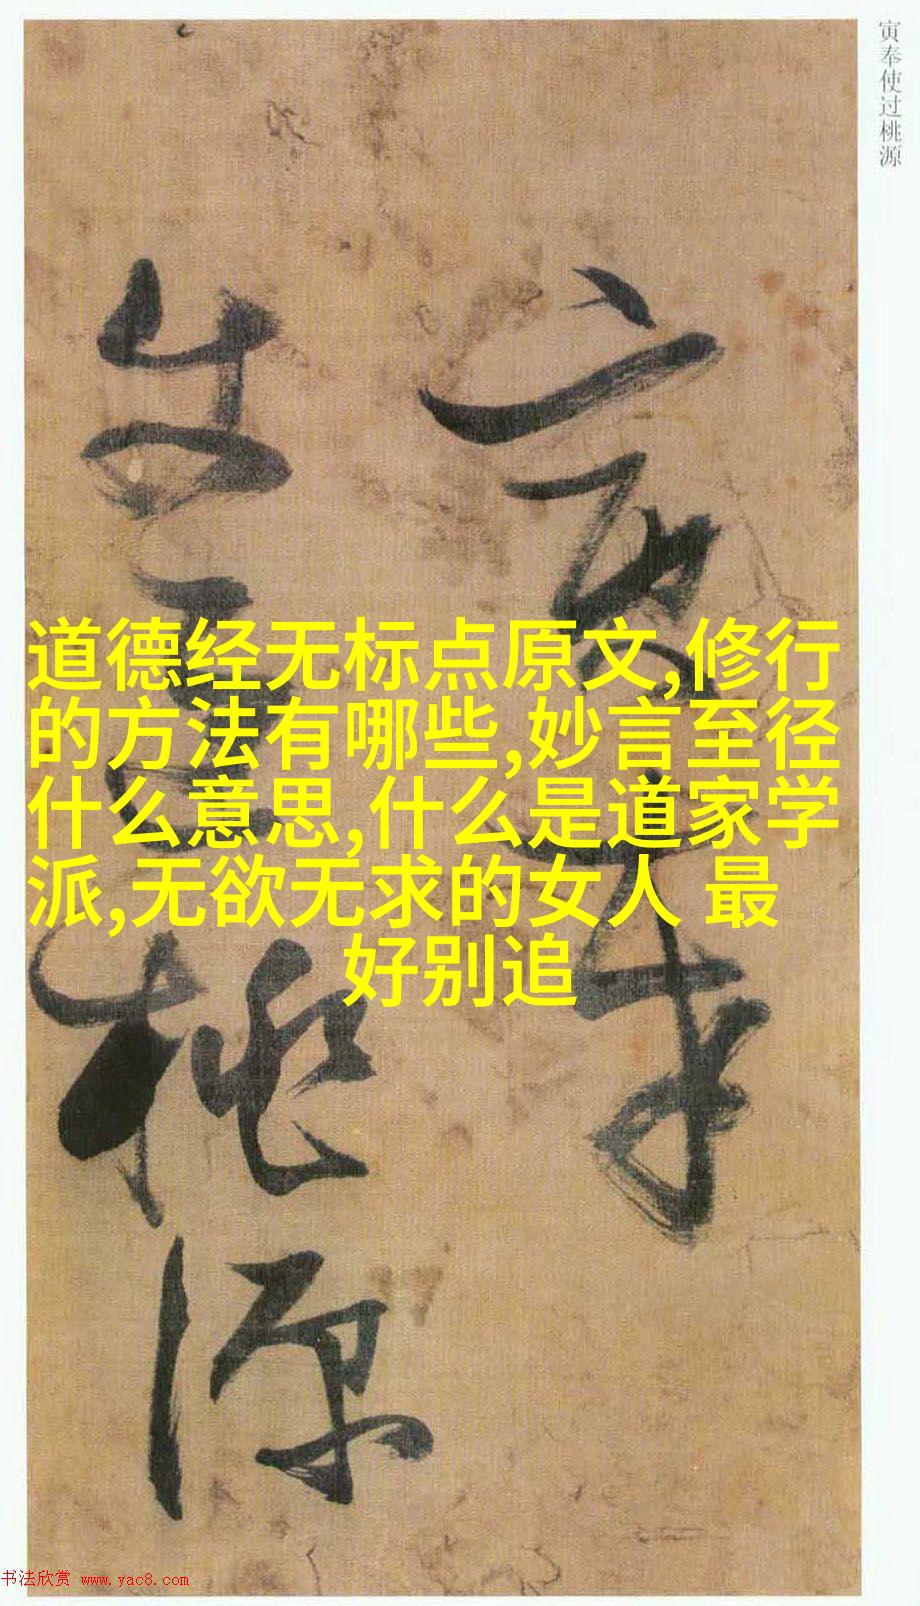 寅奉使过桃源
寅奉
使过桃源
道德经无标点原文,修行
的方法有哪些,妙言至径
什么意思,什么是道家学
派,无欲无求的女人 最
好别追
书法欣赏 www.yac8.com